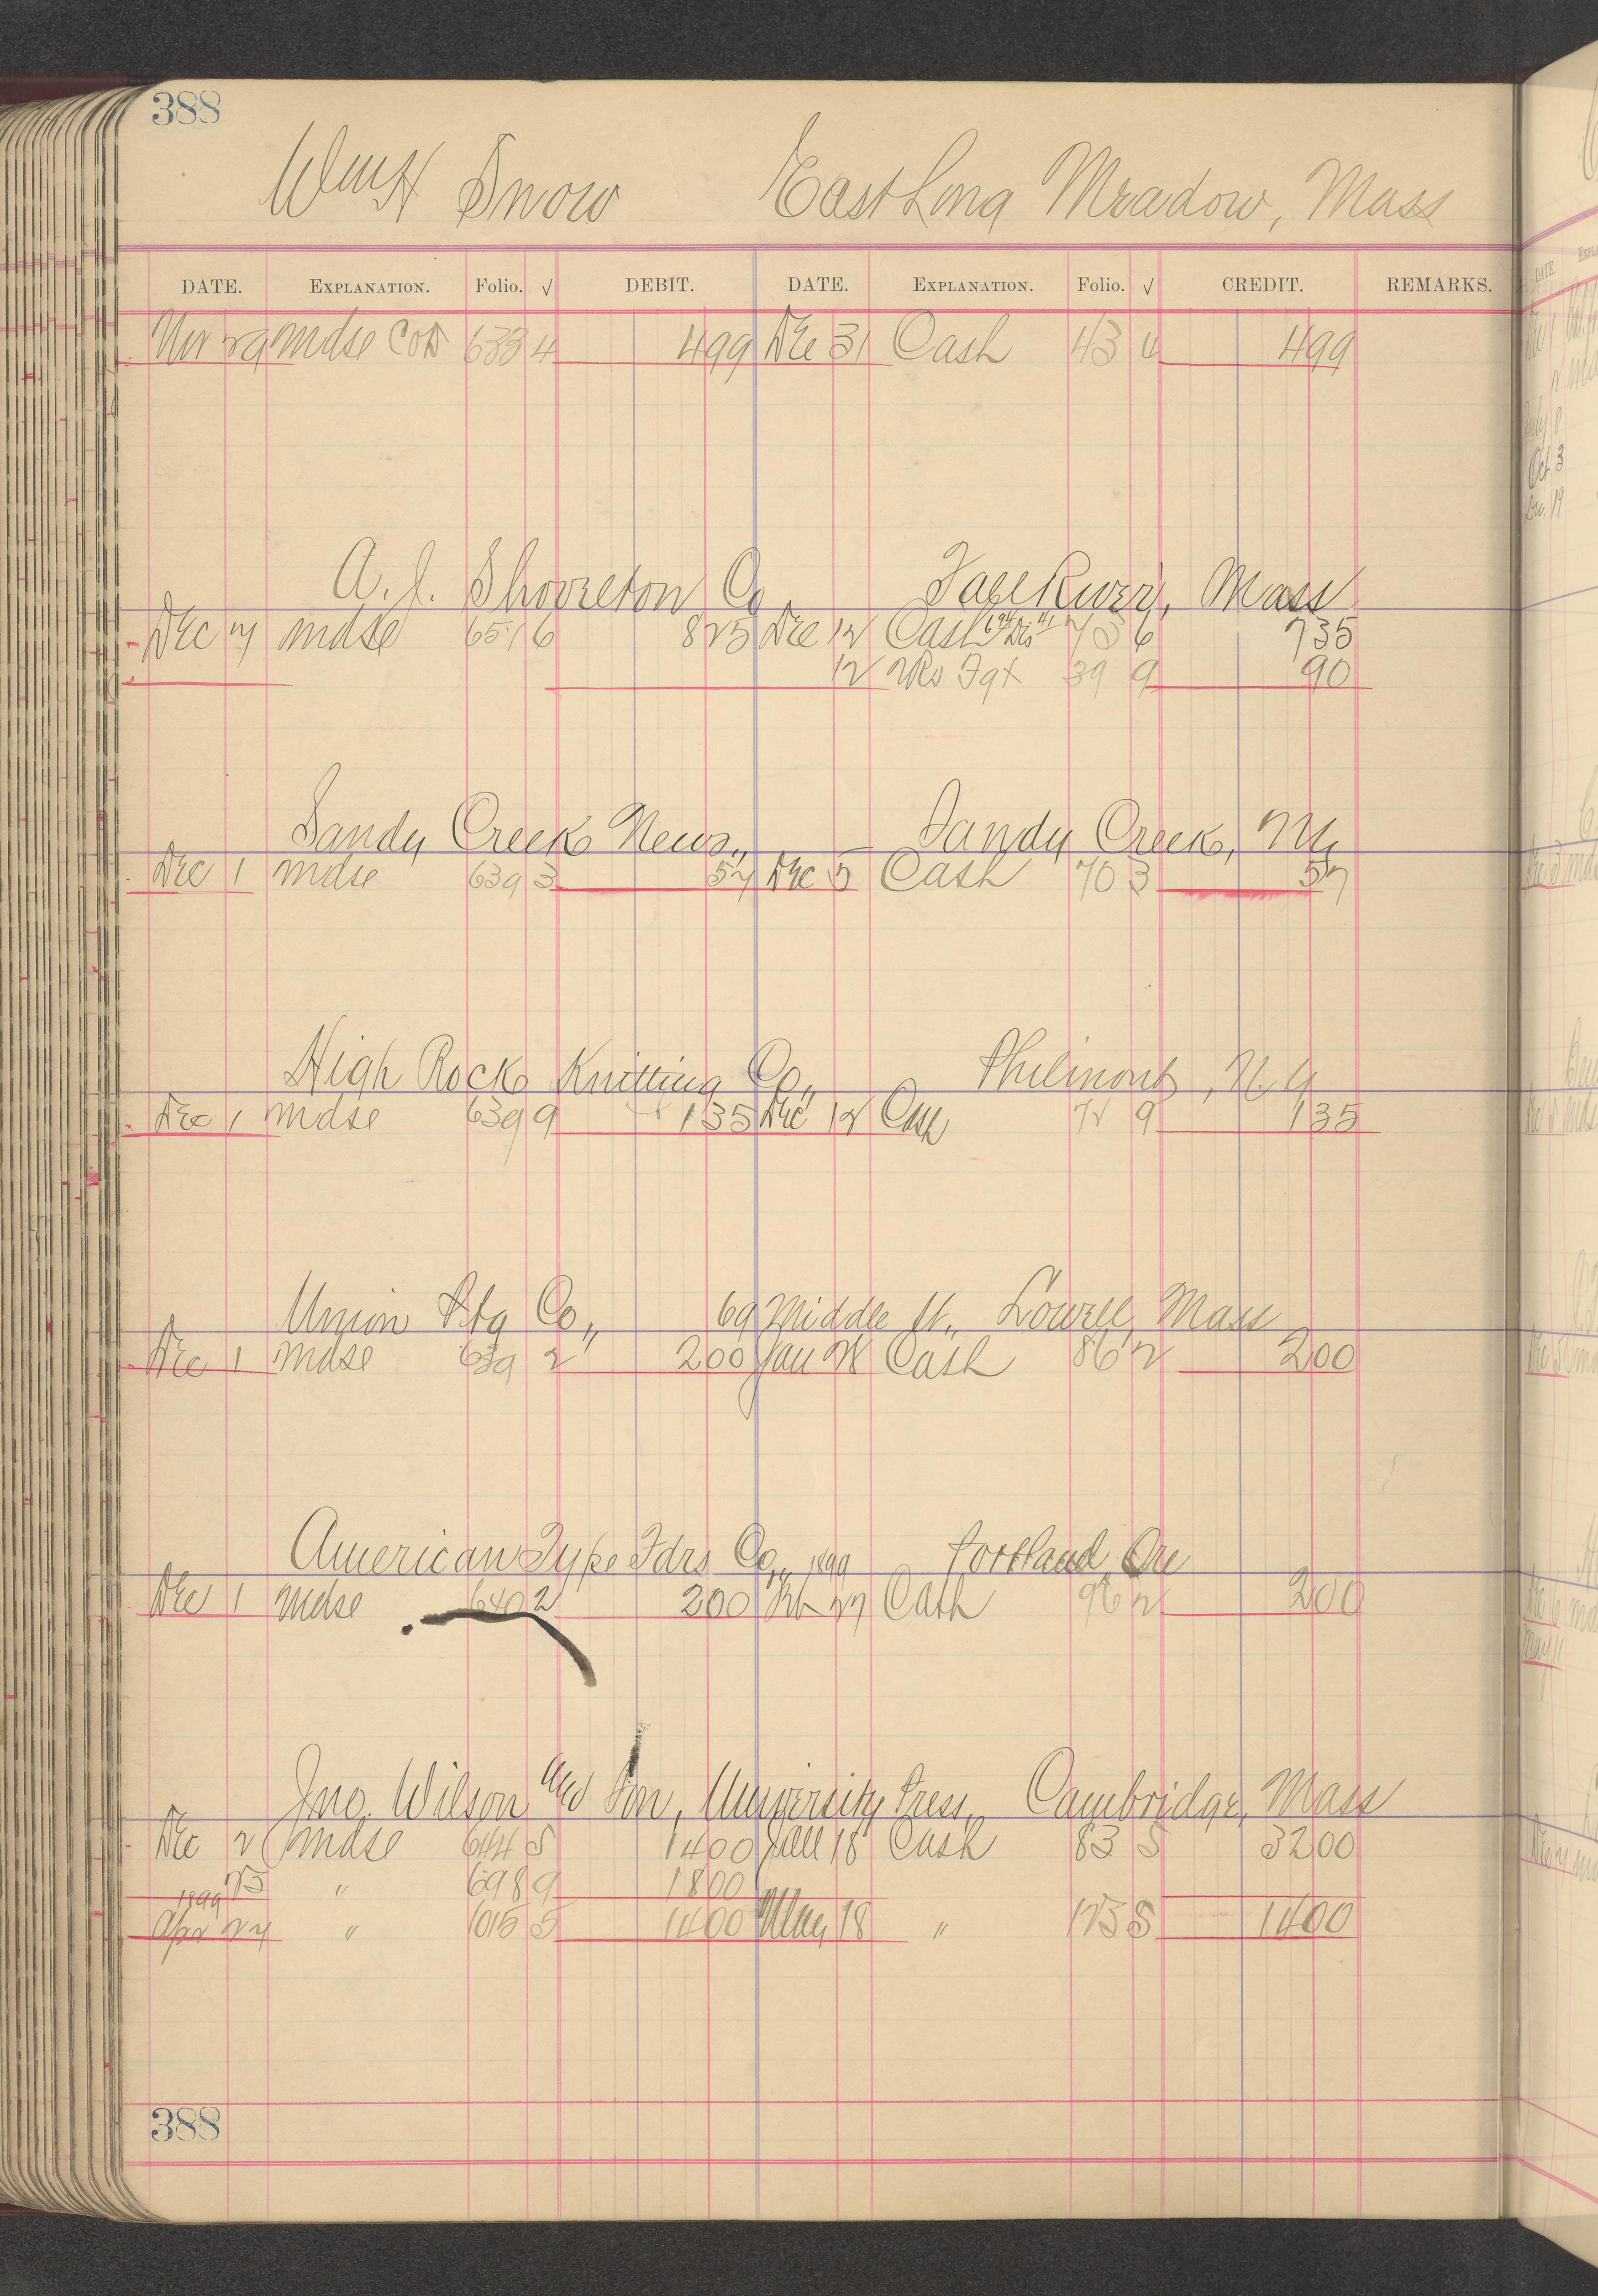 388
Wm H Snow East Long Meadow, Mass
DATE. EXPLANATION. Folio. √ DEBIT. DATE. EXPLANATION. Folio. √ CREDIT. REMARKS.
Nov 29 Mdse COD 633 4 499 Dec 31 Cash 43 4 499
A. J. Shovelton Co Fall River, Mass
Dec 7 Mdse 651 6 825 Dec 12 Cash 73 6 735
12 Frt 39 9 90
Sandy Creek News, Sandy Creek, NY,
Dec 1 Mdse 639 3 57 Dec 5 Cash 70 3 57
High Rock Knitting Co., Philmont, N.Y
Dec 1 Mdse 639 9 135 Dec 12 Cash 72 9 135
Union Ptg Co., 69 Middle St., Lowell, Mass
Dec 1 Mdse 639 2 200 Jan Cash 86 2 200
American Type Fdrs Co., 1899 Portland Ore
Dec 1 Mdse 640 2 200 Feb 27 Cash 96 2 200
Jno. Wilson and Son, University Press, Cambridge, Mass
Dec 2 Mdse 644 5 1400 Jan 18 Cash 83 5 3200
23 " 698 9 1800
1899
Apr 24 " 1015 5 1400 May 18 " 123 5 1400
388